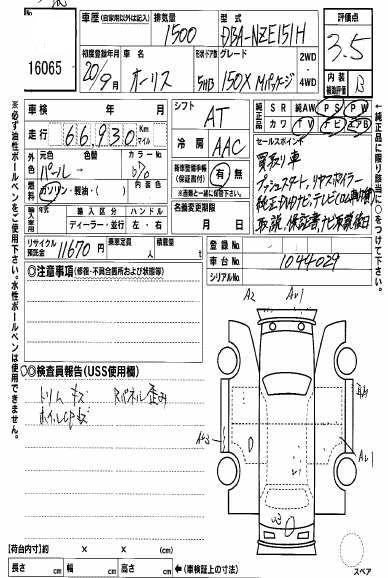 16065
車歴(自家用以外は記入)
排気量
1500
型式
DBA-NZE151H
評価点
3.5
初度登録年月
20/9月
車名
オーリス
形状・ドア数
5HB
グレード
150X Mパッケージ
2WD
4WD
内装
補助評価
B
車検 年 月
走行 66,930 Km
マイル
外色
元色
パール
色替
カラーNo
070
内装色
燃料
ガソリン・軽油・( )
輸入車用
輸入区分
ディーラー・並行
ハンドル
左・右
リサイクル預託金
11670円
乗車定員
人
積載量
t
シフト
AT
冷房
AAC
新車整備手帳
(保証書付)
有 無
※流通に備えて保管
名義変更期限
月 日
純正品
SR 純AW PS PW
カワ TV ナビ エアB
セールスポイント
買取り車
プッシュスタート、リヤスポイラー
取説、保証書、ナビ
登録No
車台No
1044029
シリアルNo
◎注意事項(修復・不具合箇所および状態等)
◎検査員報告(USS使用欄)
トリムキズ
Rパネル歪み
A2
Av1
Av3
Av1
スペア
【荷台内寸】 × × (cm)
長さ cm 幅 cm 高さ cm ←(車検証上の寸法)
※必ず油性ボールペンをご使用下さい。水性ボールペンは使用できません。
↑純正品に限り該当に○をつけて下さい。